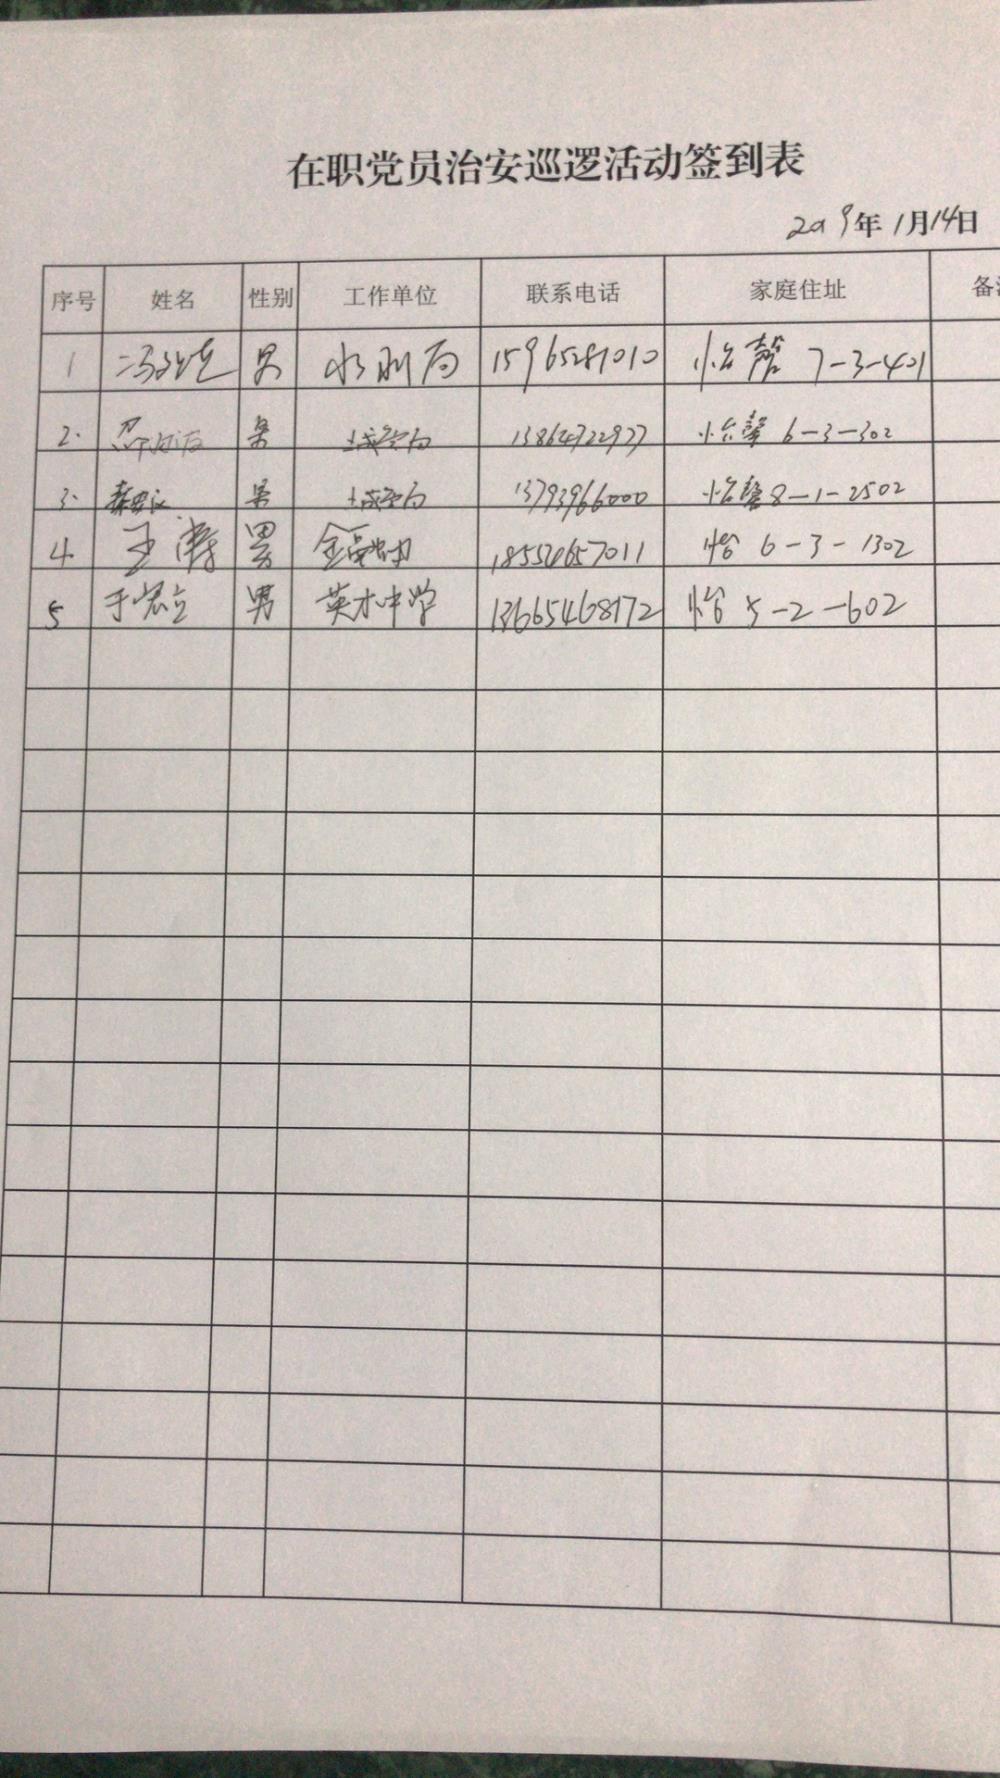 在职党员治安巡逻活动签到表
2019年1月14日
序号 姓名 性别 工作单位 联系电话 家庭住址
1 男 水利局 15965281010 怡馨 7-3-401
2. 男 13864722927 怡馨 6-3-302
3. 男 13793966000 怡馨 8-1-2502
4 王涛 男 18554657011 怡 6-3-1302
5 于宏立 男 英才中学 13665468172 怡 5-2-602